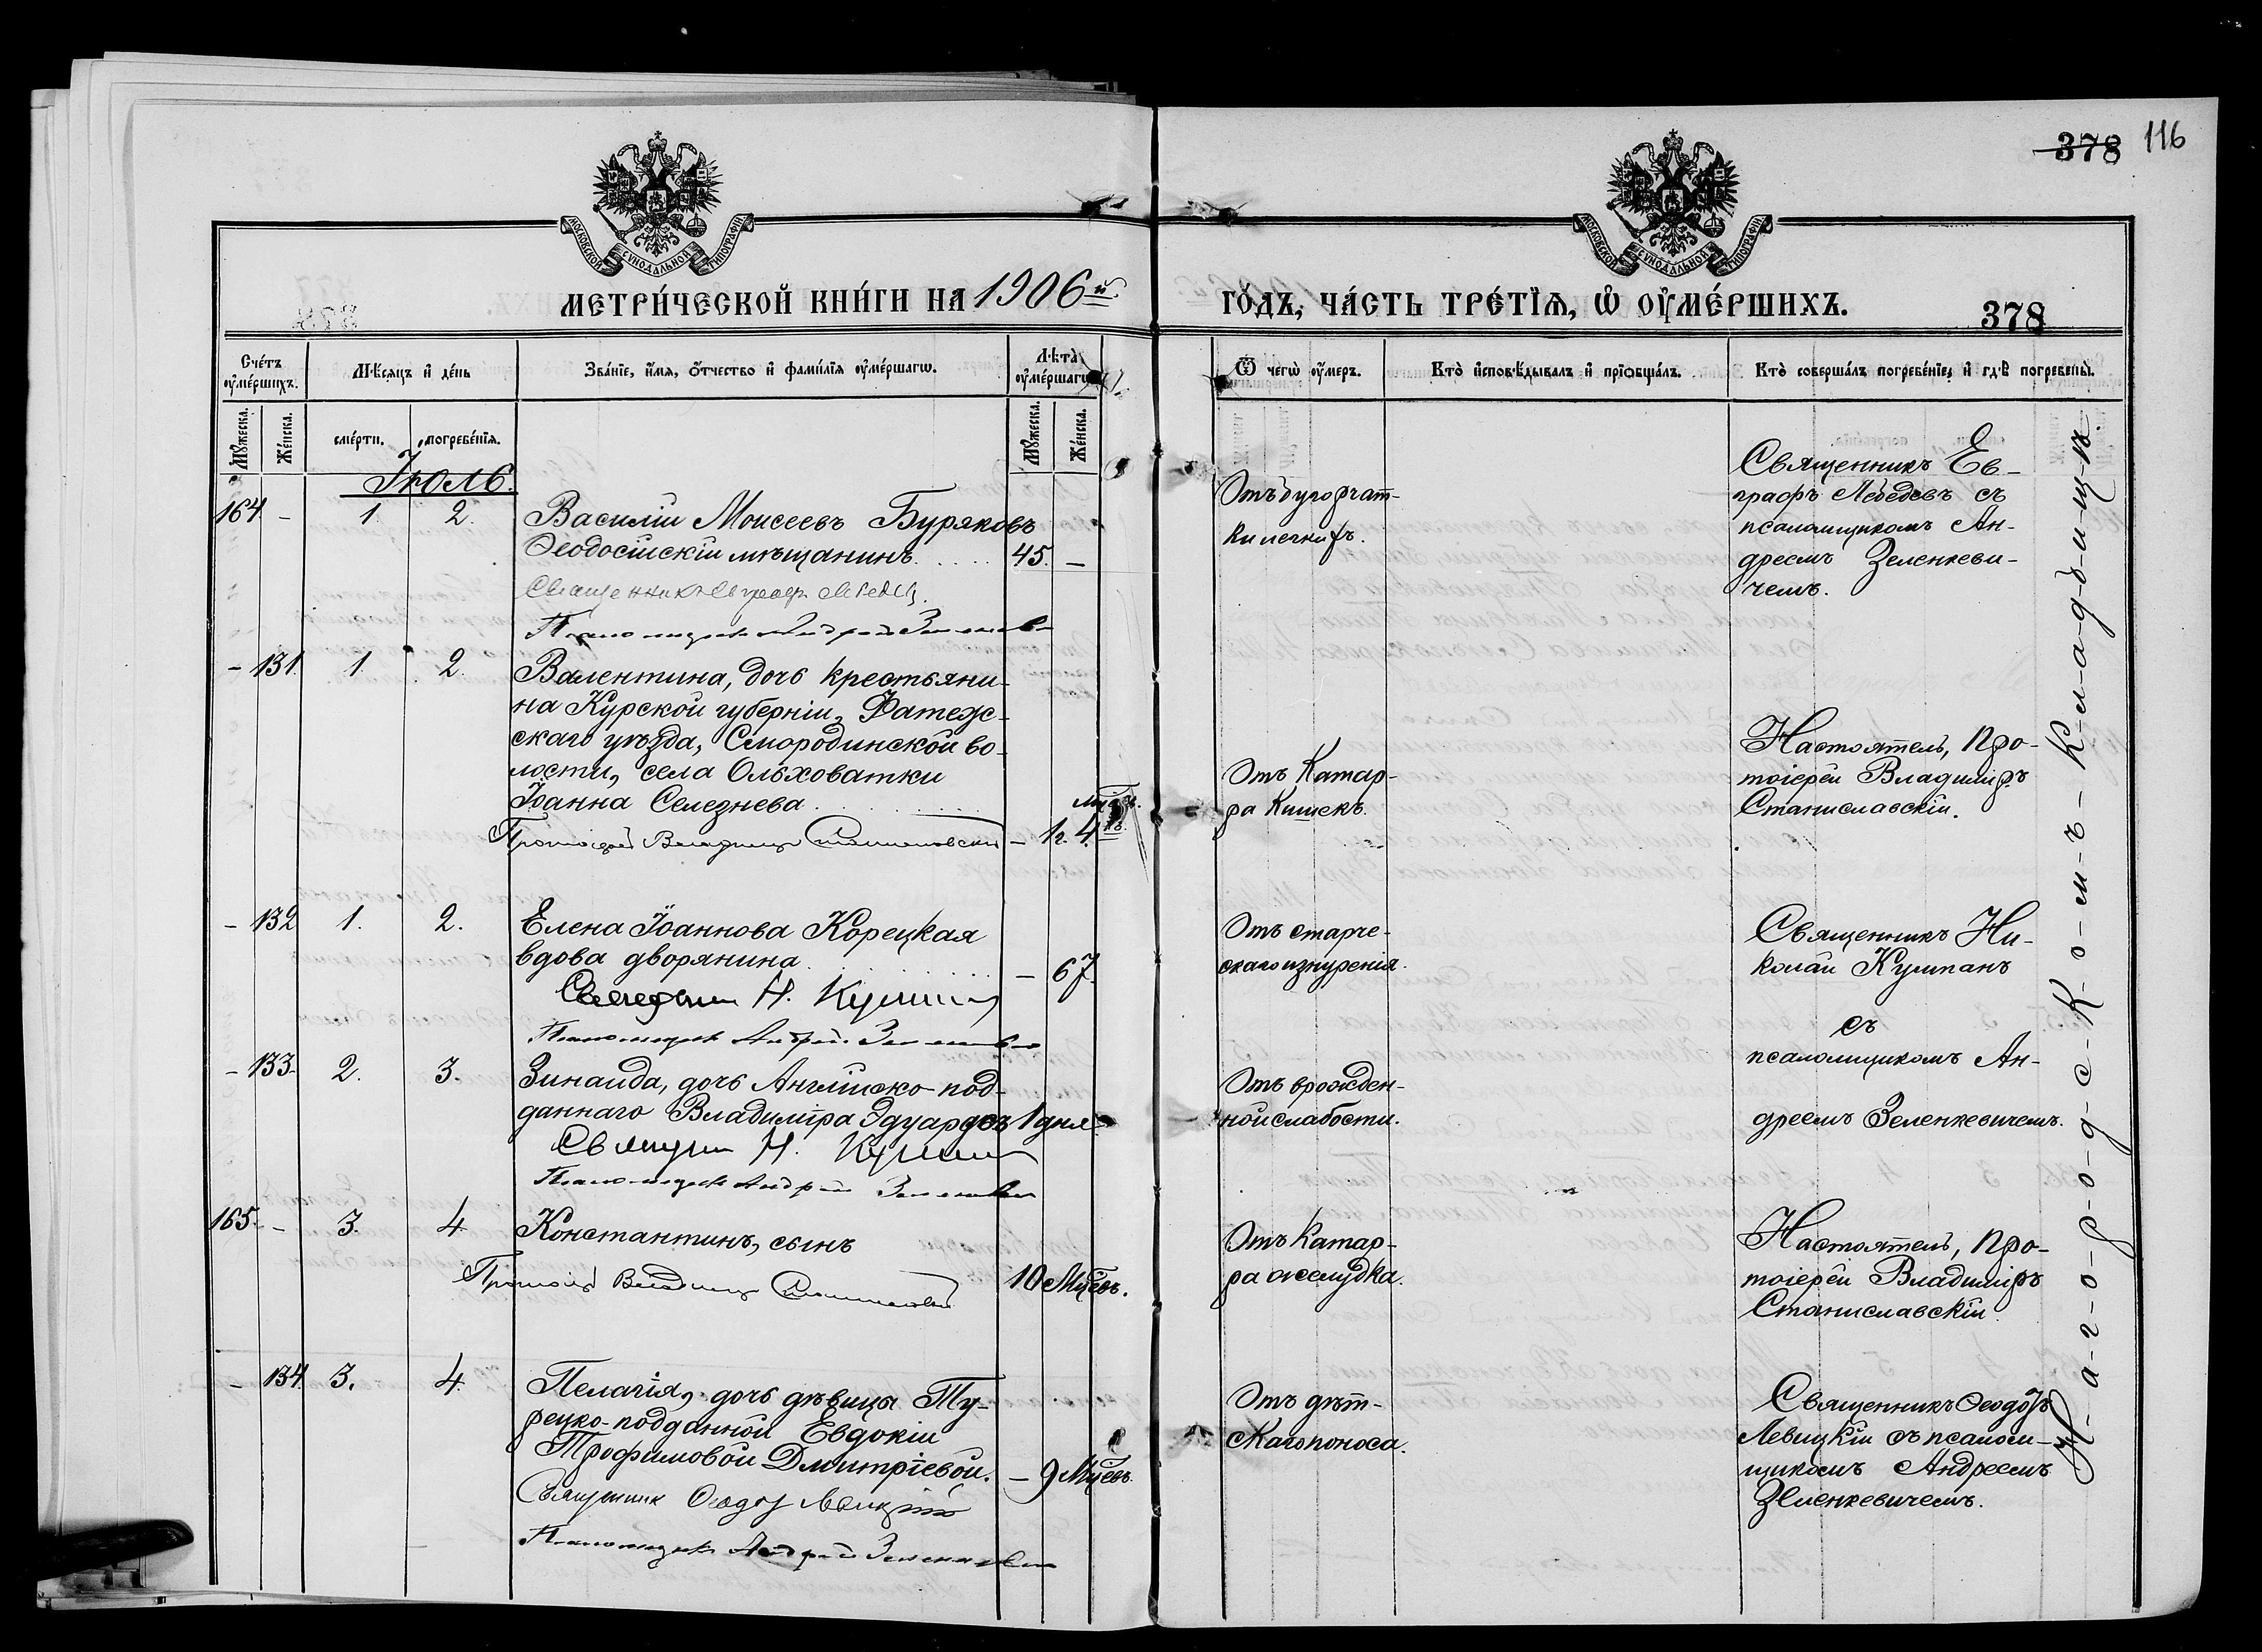 378 116
МОСКОВСКОЙ СѴНОДАЛЬНОЙ ТИПОГРАФІИ
МОСКОВСКОЙ СѴНОДАЛЬНОЙ ТИПОГРАФІИ
МЕТРИ́ЧЕСКОЙ КНИ́ГИ НА 1906й
ГО́ДЪ, ЧА́СТЬ ТРЕ́ТІѦ, Ѡ҆ ОУ҆МЕ́РШИХЪ.
378
Сче́тъ оу҆ме́ршихъ.
Мѣ́сяцъ и҆ де́нь
Зва́нїе, и҆́мя, ѻ҆́тчество и҆ фами́лїя оу҆ме́ршагѡ.
Лѣ́та оу҆ме́ршагѡ
Ѿ чегѡ̀ оу҆́меръ.
Кто̀ и҆сповѣ́дывалъ и҆ прїѡбща́лъ.
Кто̀ соверша́лъ погребе́нїе, и҆ гдѣ̀ погребены̀.
Мꙋ́жеска.
Же́нска.
сме́рти.
погребе́нїя.
Мꙋ́жеска.
Же́нска.
Іюль.
164 - 1. 2. Василій Моисеевъ Буряковъ
Ѳеодосійскій мѣщанинъ. 45. -
Священникъ Евграфъ Лебедев.
Псаломщикъ Андрей Зеленкевич
Отъ бугорчат-
ки легкихъ.
Священникъ Ев-
графъ Лебедевъ съ
псаломщикомъ Ан-
дреемъ Зеленкеви-
чемъ.
- 131. 1. 2. Валентина, дочь крестьяни-
на Курской губерніи, Фатеж-
скаго уѣзда, Смородинской во-
лости, села Ольховатки
Іоанна Селезнева
Протоіерей Владимир Станиславский - 1 г. 4
Отъ Катар-
ра Кишекъ.
Настоятель, Про-
тоіерей Владиміръ
Станиславскій.
- 132 1. 2. Елена Іоаннова Корецкая
вдова дворянина - 67.
Священник Н. Кушпан
Псаломщик Андрей Зеленкевич
Отъ старче-
скаго изнуренія.
Священникъ Ни-
колай Кушпанъ
съ
псаломщикомъ Ан-
дреемъ Зеленкевичемъ.
- 133- 2. 3. Зинаида, дочь Англійско-под-
даннаго Владиміра Эдуардсъ 1 дня
Священник Н. Кушпан
Псаломщик Андрей Зеленкевич
Отъ врожден-
ной слабости.
165. - 3. 4 Константинъ, сынъ
Протоіерей Владимир Станиславский 10 Мѣсяц.
Отъ Катар-
ра желудка.
Настоятель, Про-
тоіерей Владиміръ
Станиславскій.
- 134. 3. 4. Пелагія, дочь дѣвицы Ту-
рецко-подданной Евдокіи
Трофимовой Дмитріевой. - 9 Мѣсяц.
Священник Ѳеодор Левицкій
Псаломщик Андрей Зеленкевич
Отъ дѣт-
скаго поноса.
Священникъ Ѳеодоръ
Левицкій съ псалом-
щикомъ Андреемъ
Зеленкевичемъ.
Н-а-г-о-р-о-д-с-К-о-м-ъ-К-л-а-д-б-и-щ-ѣ.